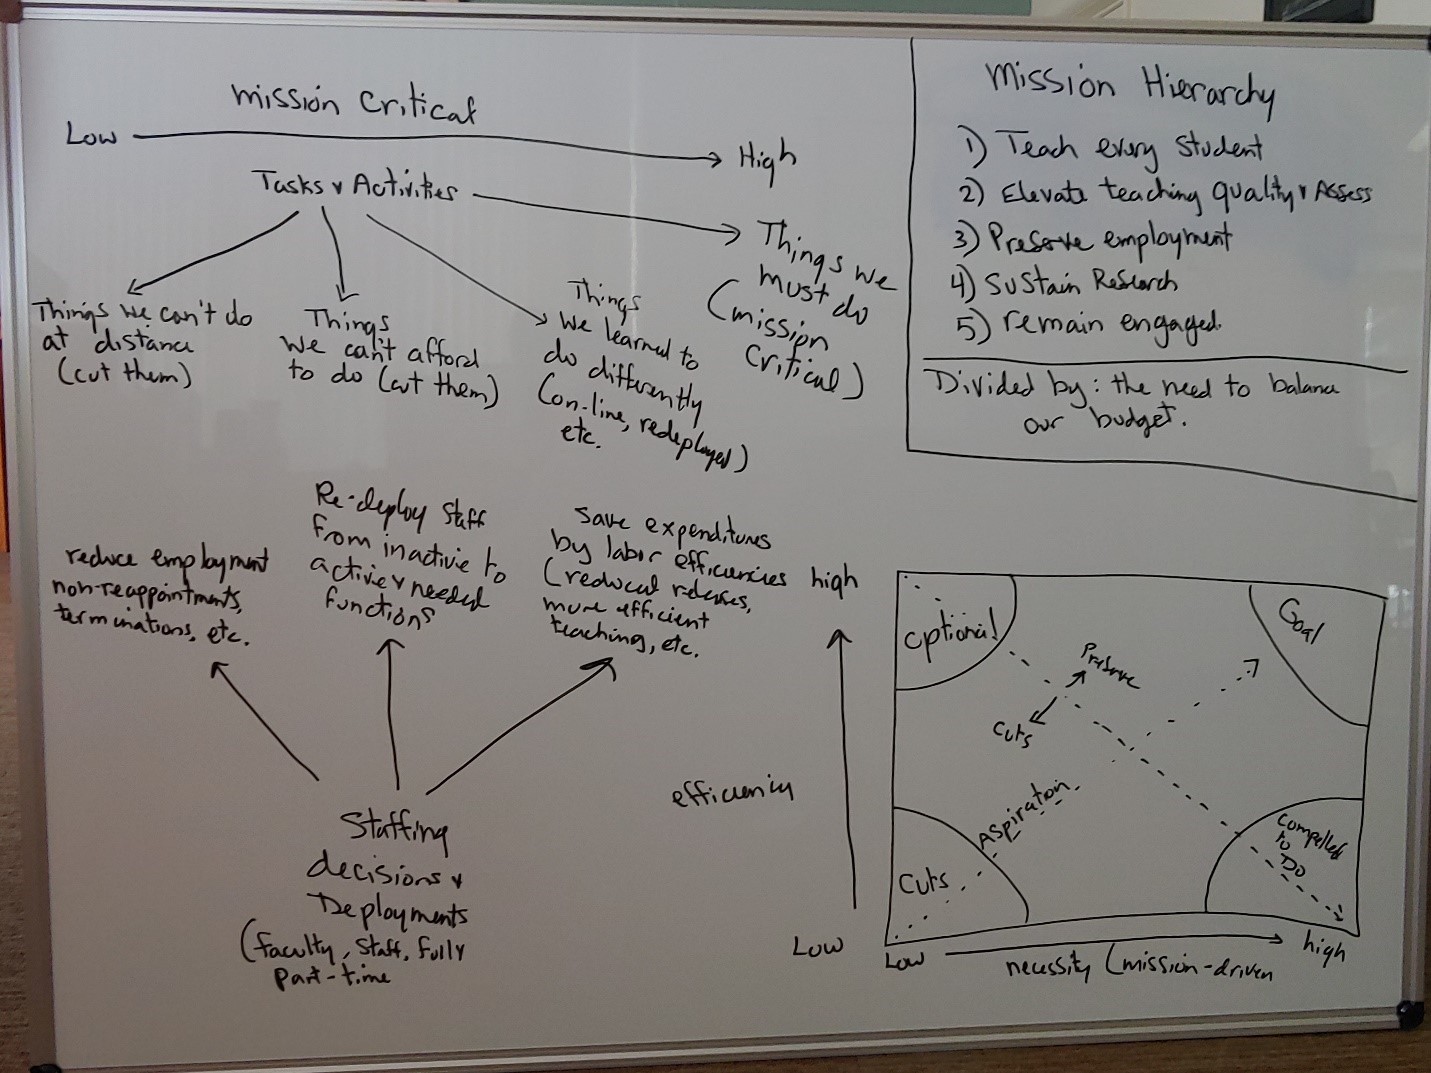 mission critical
Low
High
Tasks & Activities
Things we can't do
at distance
(cut them)
Things
we can't afford
to do (cut them)
Things
we learned to
do differently
(on-line, redeployed)
etc.
Things we
must do
(mission
critical)
Mission Hierarchy
1) Teach every student
2) Elevate teaching quality & Assess
3) Preserve employment
4) Sustain Research
5) remain engaged.
Divided by: the need to balance
our budget.
reduce employment
non-reappointments,
terminations, etc.
Re-deploy staff
from inactive to
active & needed
functions
Save expenditures
by labor efficiencies
(reduced releases,
more efficient
teaching, etc.
Staffing
decisions &
Deployments
(faculty, staff, full &
part-time
high
efficiency
Low
Optional
Goal
Preserve
Cuts
Aspiration
Cuts
Compelled
to
Do
Low
necessity (mission-driven
high